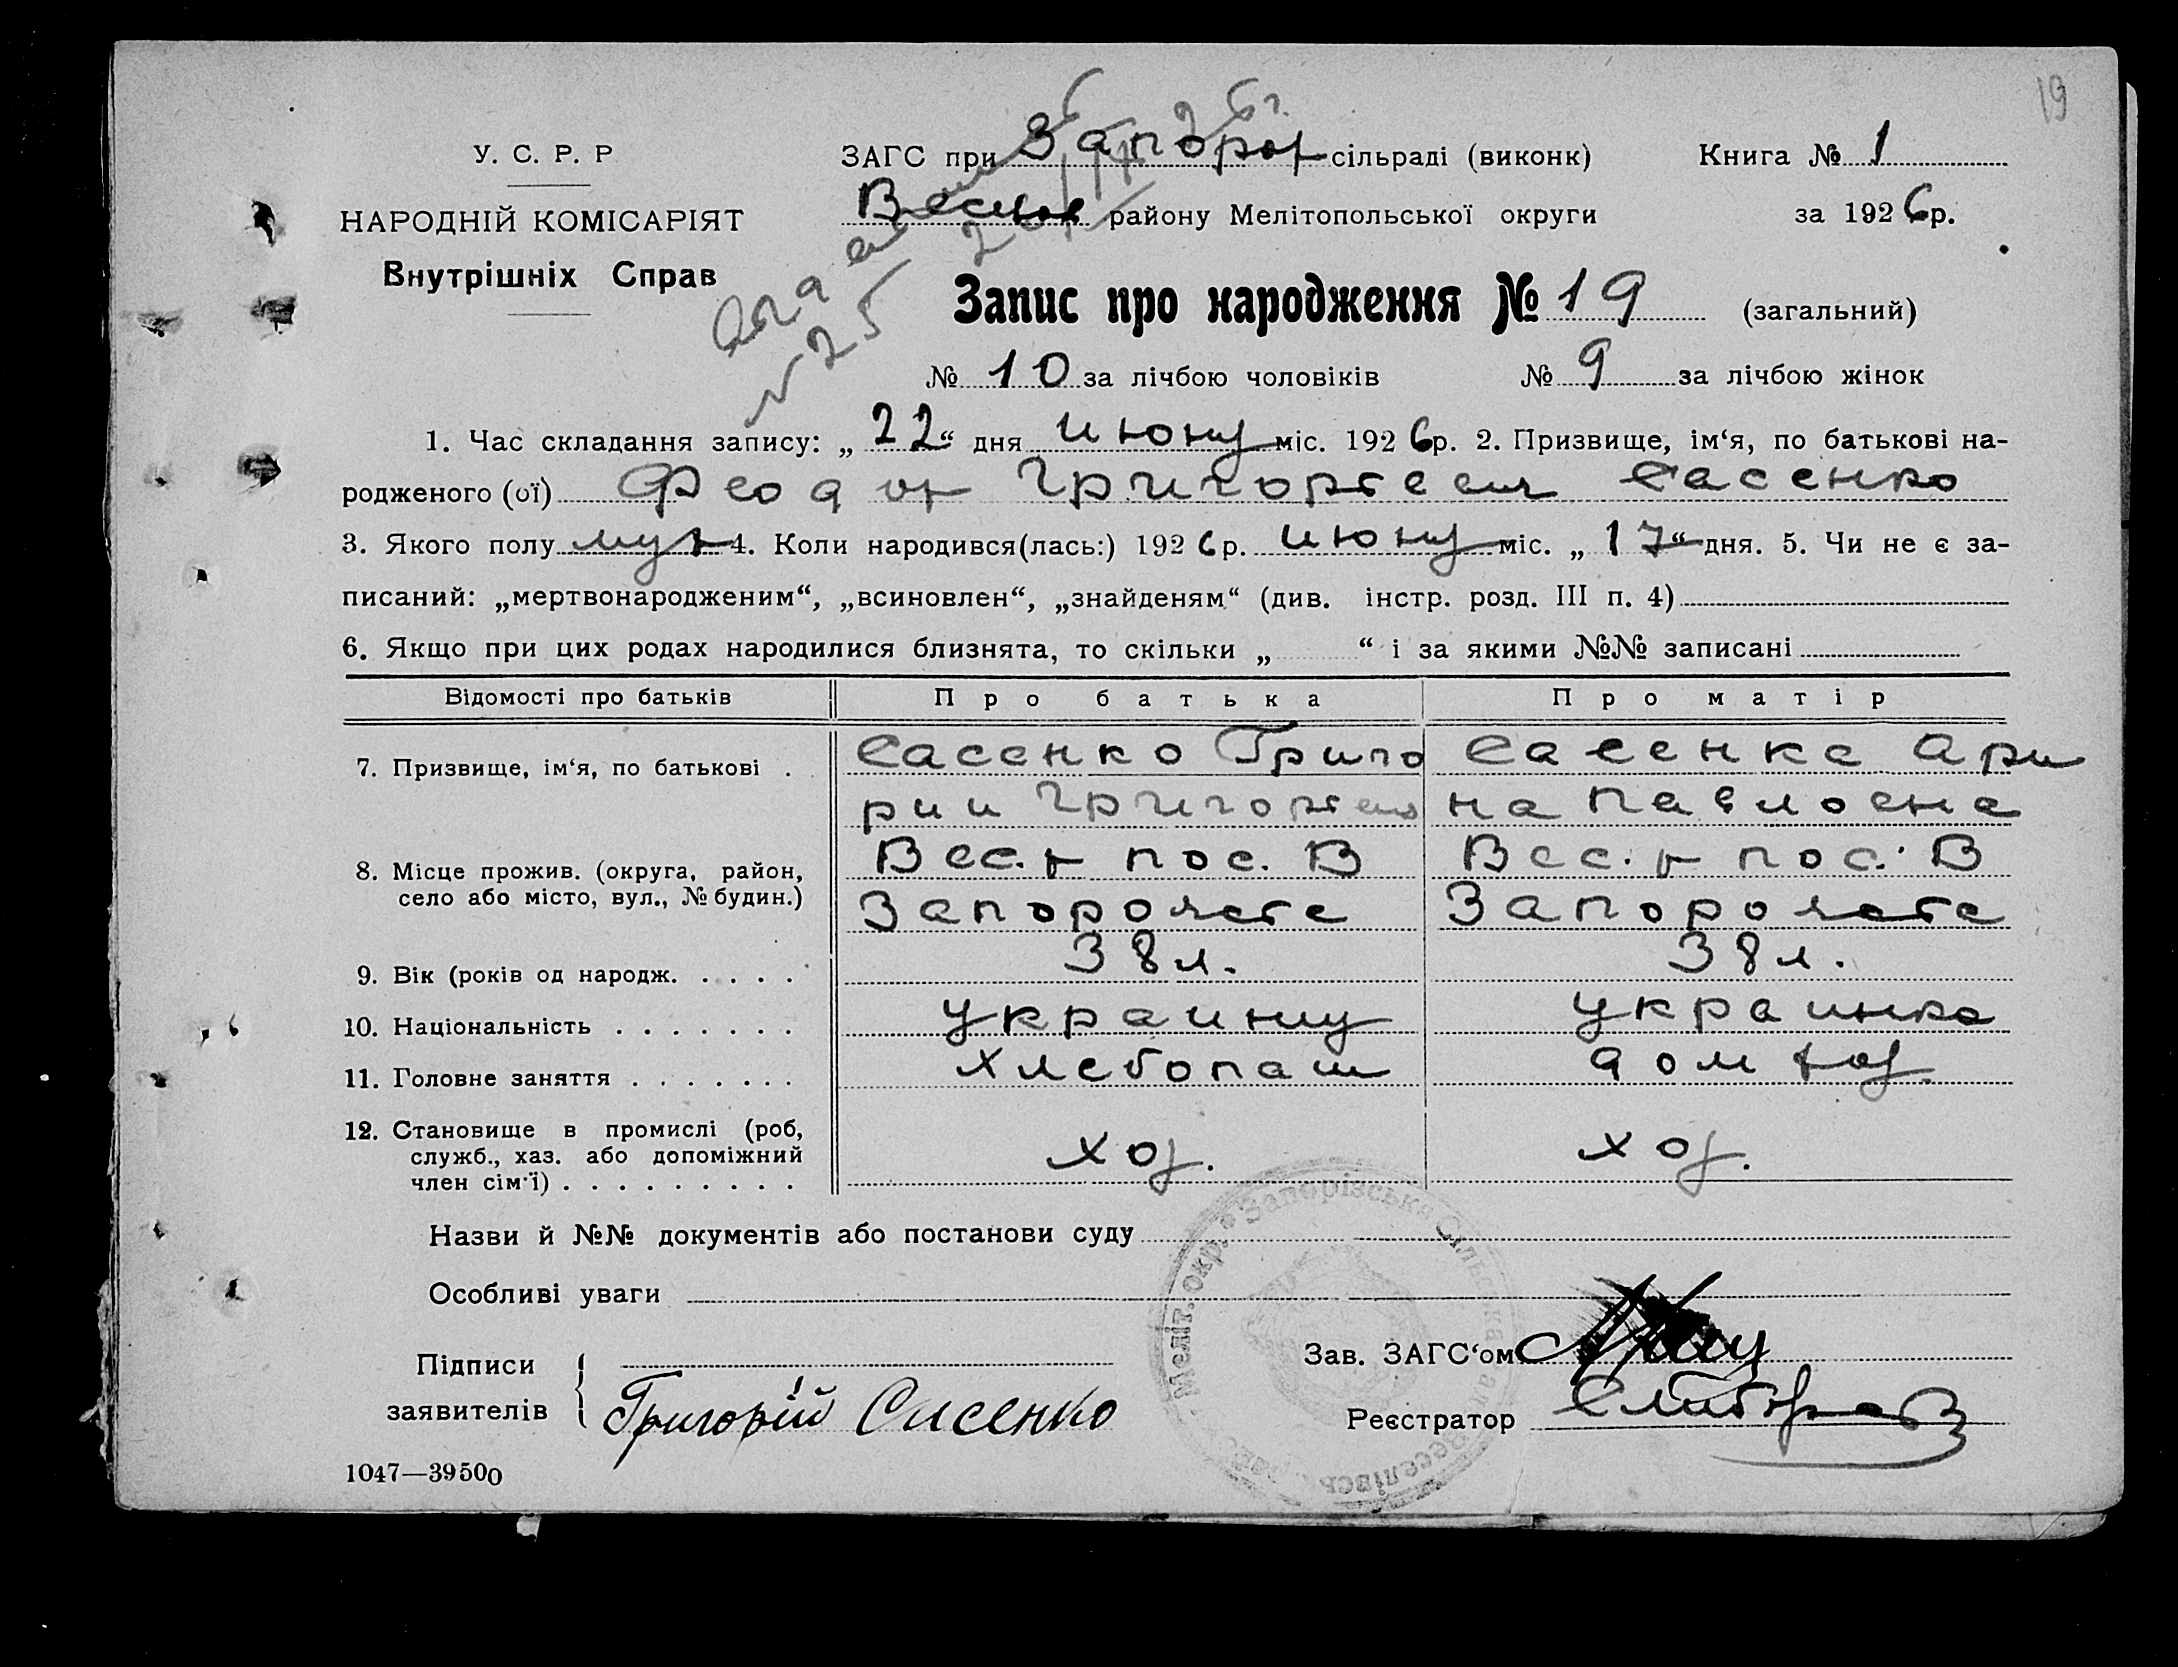 19
У. С. Р. Р
НАРОДНІЙ КОМІСАРІЯТ
Внутрішніх Справ
ЗАГС при Запорож сільраді (виконк)
Книга № 1
Весел района Мелітопольської округи
за 1926 р.
№ 25
Запис про народження № 19 (загальний)
№ 10 за лічбою чоловіків № 9 за лічбою жінок
1. Час складання запису: „22“ дня июня міс. 1926 р. 2. Призвище, ім‘я, по батькові на-
родженого (ої) Григорьевич Сасенко
3. Якого полу муж 4. Коли народився(лась:) 1926 р. июня міс. „17“ дня. 5. Чи не є за-
писаний: „мертвонародженим“, „всиновлен“, „знайденям“ (див. інстр. розд. III п. 4)
6. Якщо при цих родах народилися близнята, то скільки „ “ і за якими №№ записані
Відомості про батьків Про батька Про матір
7. Призвище, ім‘я, по батькові . Сасенко Григо Сасенко Ари
рии Григорьев на Павловна
8. Місце прожив. (округа, район, Вес. р пос. В Вес. р пос. В
село або місто, вул., № будин.) Запорожете Запорожете
9. Вік (років од народж. . . . . 38 л. 38 л.
10. Національність . . . . . . . украинец украинка
11. Головне заняття . . . . . . . хлебопаш дом хоз.
12. Становище в промислі (роб,
служб., хаз. або допоміжний хоз. хоз.
член сім‘ї) . . . . . . . . .
Назви й №№ документів або постанови суду
Особливі уваги
Підписи
заявителів Григорій Сисенко
Зав. ЗАГС‘ом
Реєстратор
Меліт. окр. * Запорізська Сільська Веселівськ
1047—39500